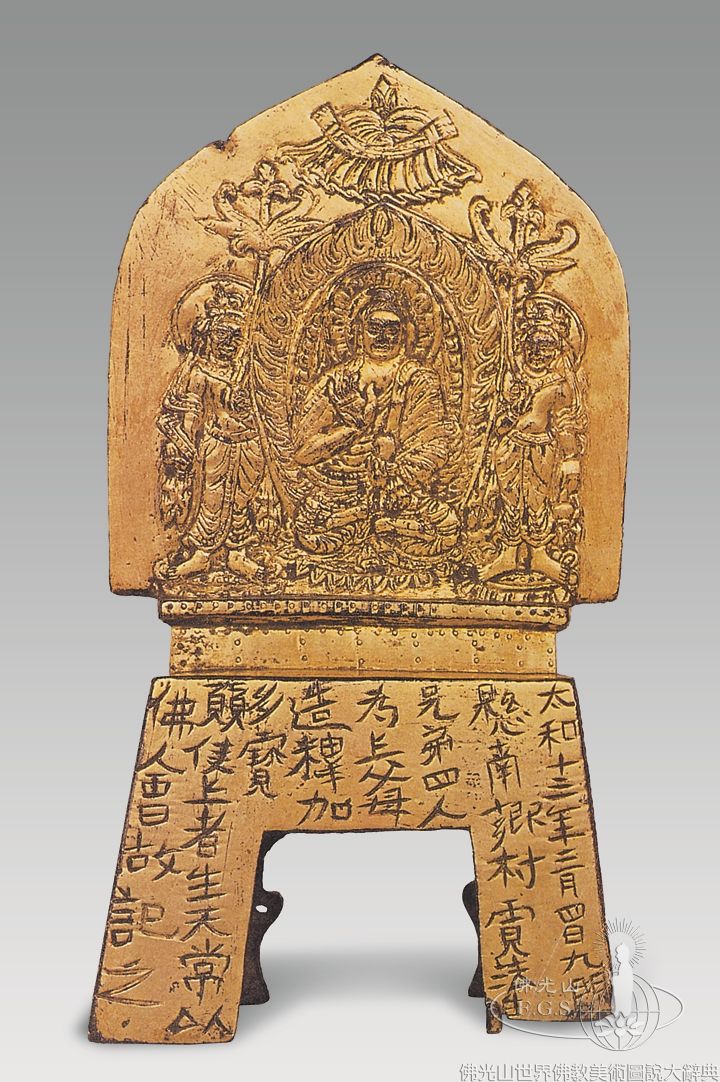 太和十三年三月四日九門
懸南鄉村賈法
兄弟四人
為亡父母
造釋加
多寶
願使亡者生天常以
佛人會故記之
佛光山
F.G.S.
佛光山世界佛教美術圖說大辭典